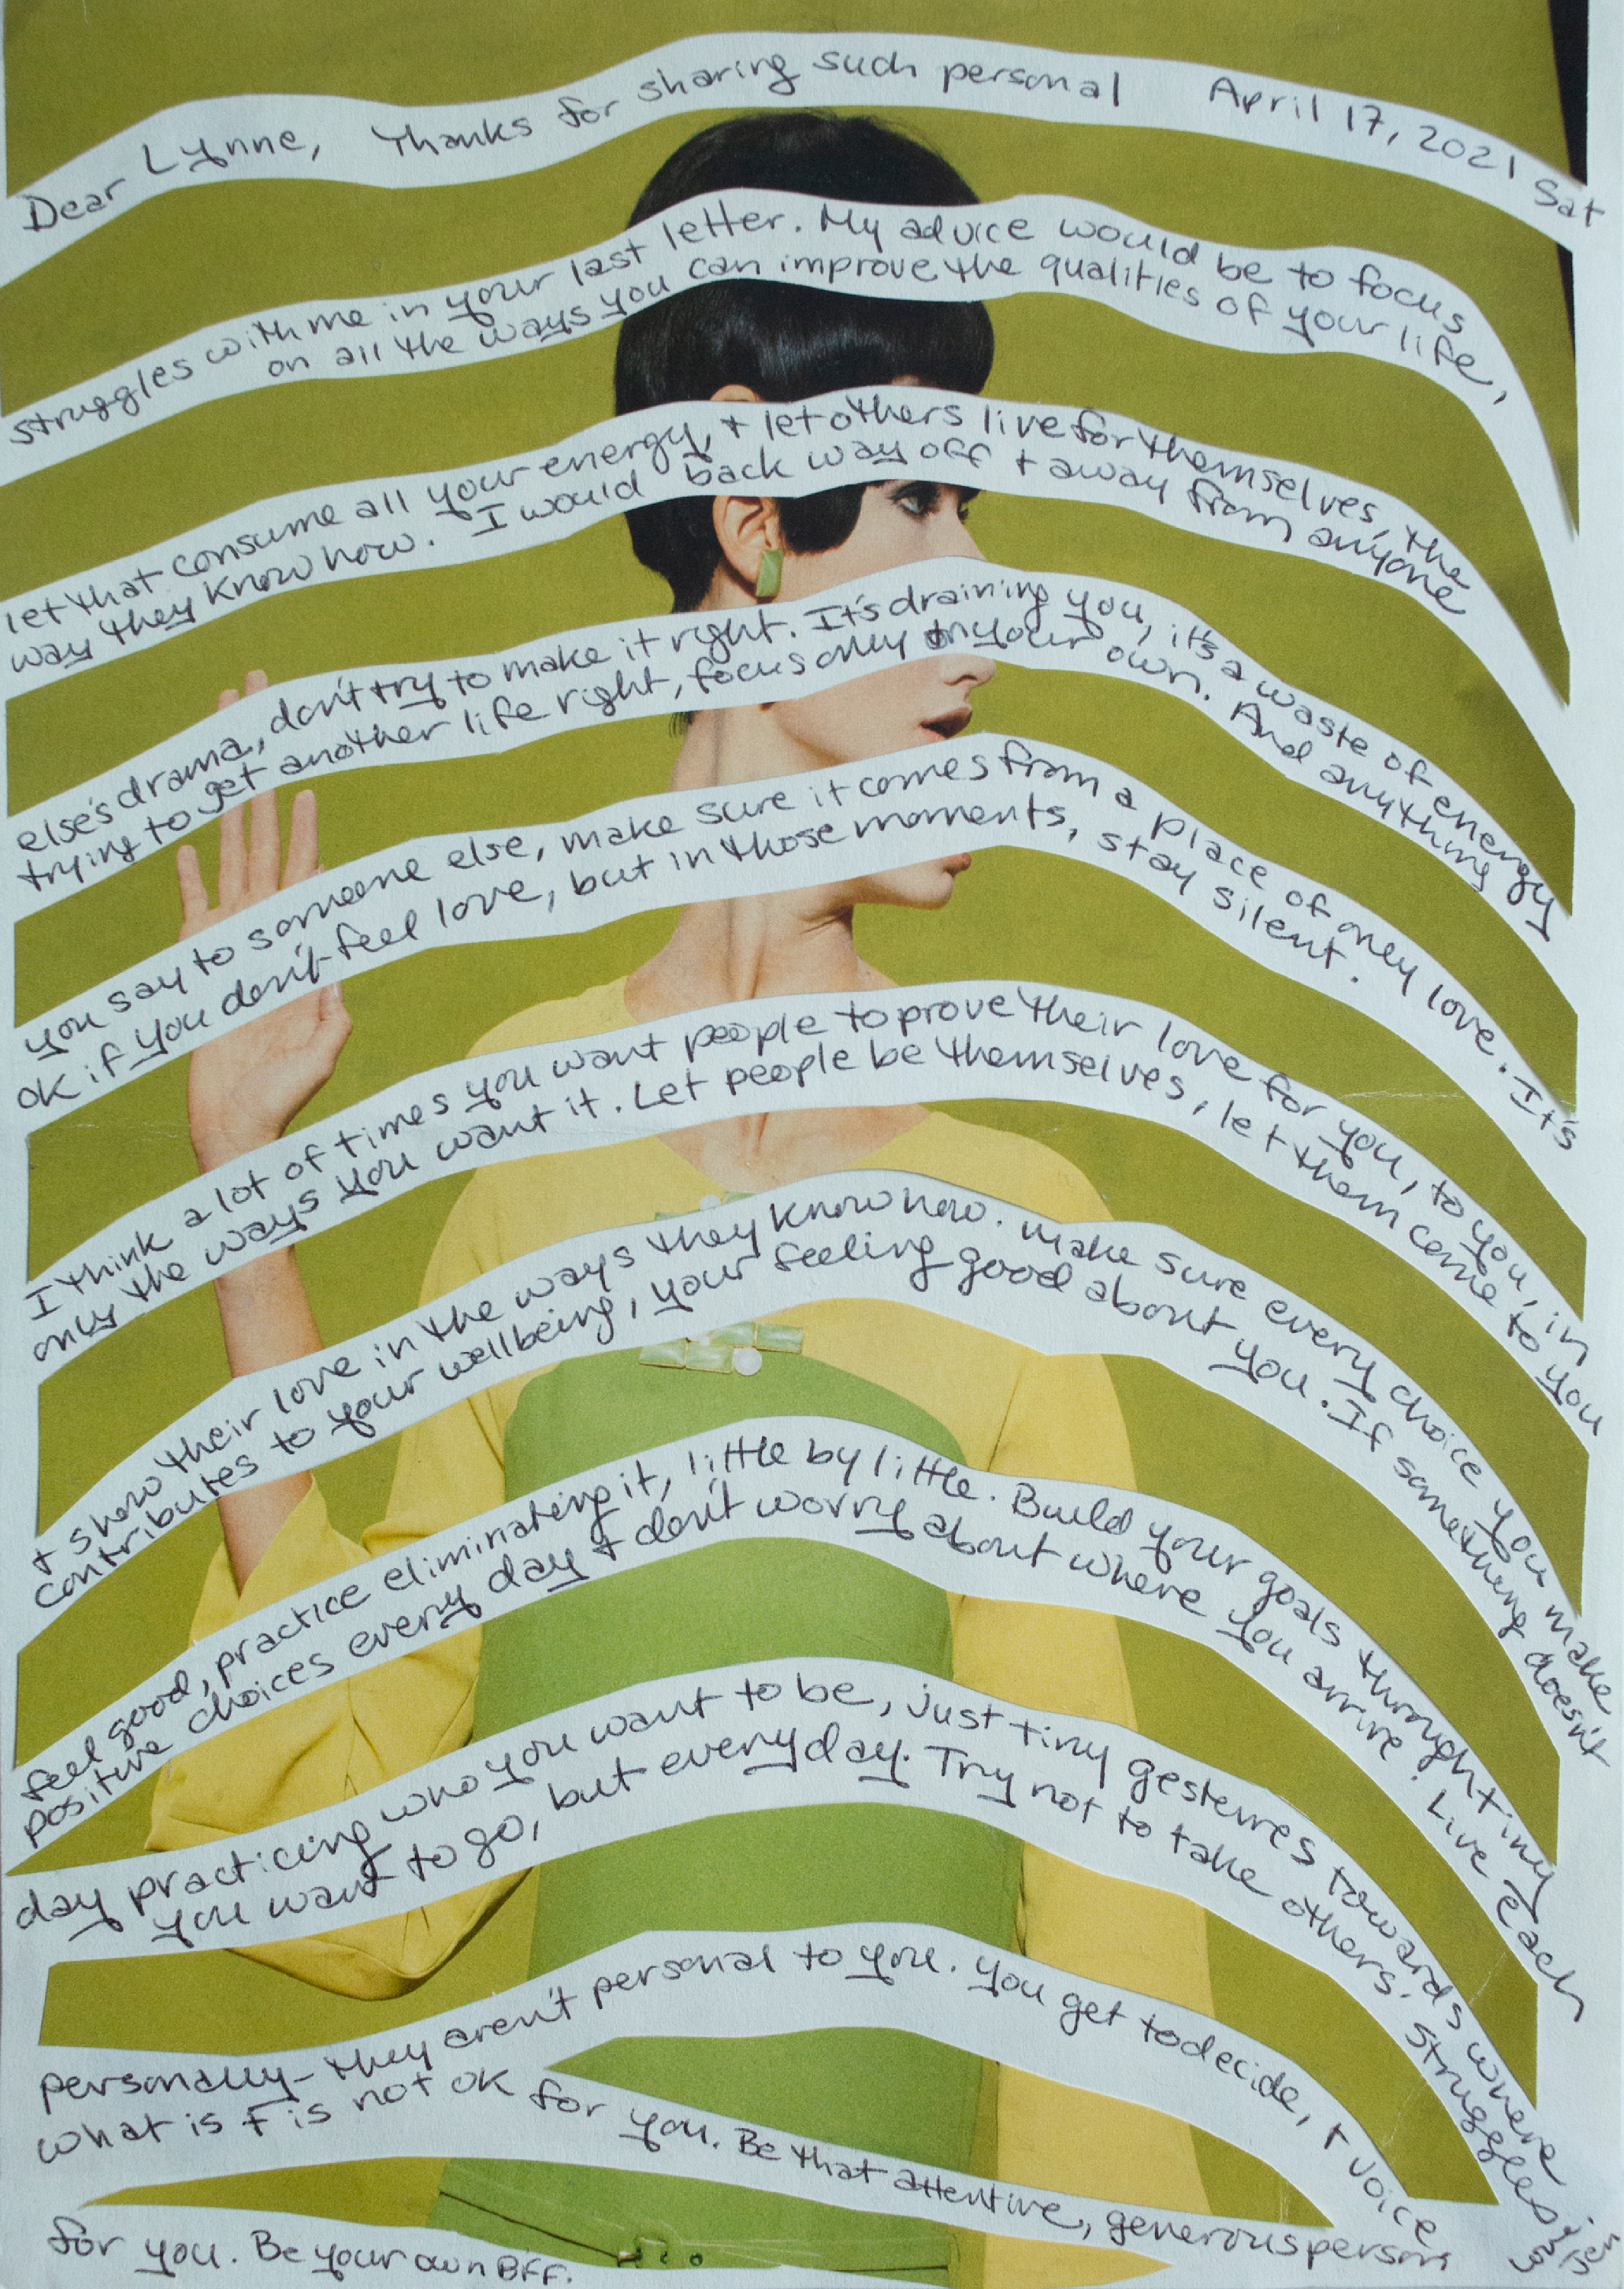 Dear Lynne, Thanks for sharing such personal April 17, 2021 Sat
struggles with me in your last letter. My advice would be to focus
on all the ways you can improve the qualities of your life,
let that consume all your energy, + let others live for themselves, the
way they know how. I would back way off + away from anyone
else's drama, don't try to make it right. It's draining you, it's a waste of energy
trying to get another life right, focus only on your own. And anything
you say to someone else, make sure it comes from a place of only love. It's
ok if you don't feel love, but in those moments, stay silent.
I think a lot of times you want people to prove their love for you, to you, in
only the ways you want it. Let people be themselves, let them come to you
+ show their love in the ways they know how. Make sure every choice you make
contributes to your wellbeing, your feeling good about you. If something doesn't
feel good, practice eliminating it, little by little. Build your goals through tiny
positive choices every day + don't worry about where you arrive. Live each
day practicing who you want to be, just tiny gestures towards where
you want to go, but every day. Try not to take others' struggles
personally - they aren't personal to you. You get to decide, + voice
what is + is not ok for you. Be that attentive, generous person
for you. Be your own BFF.